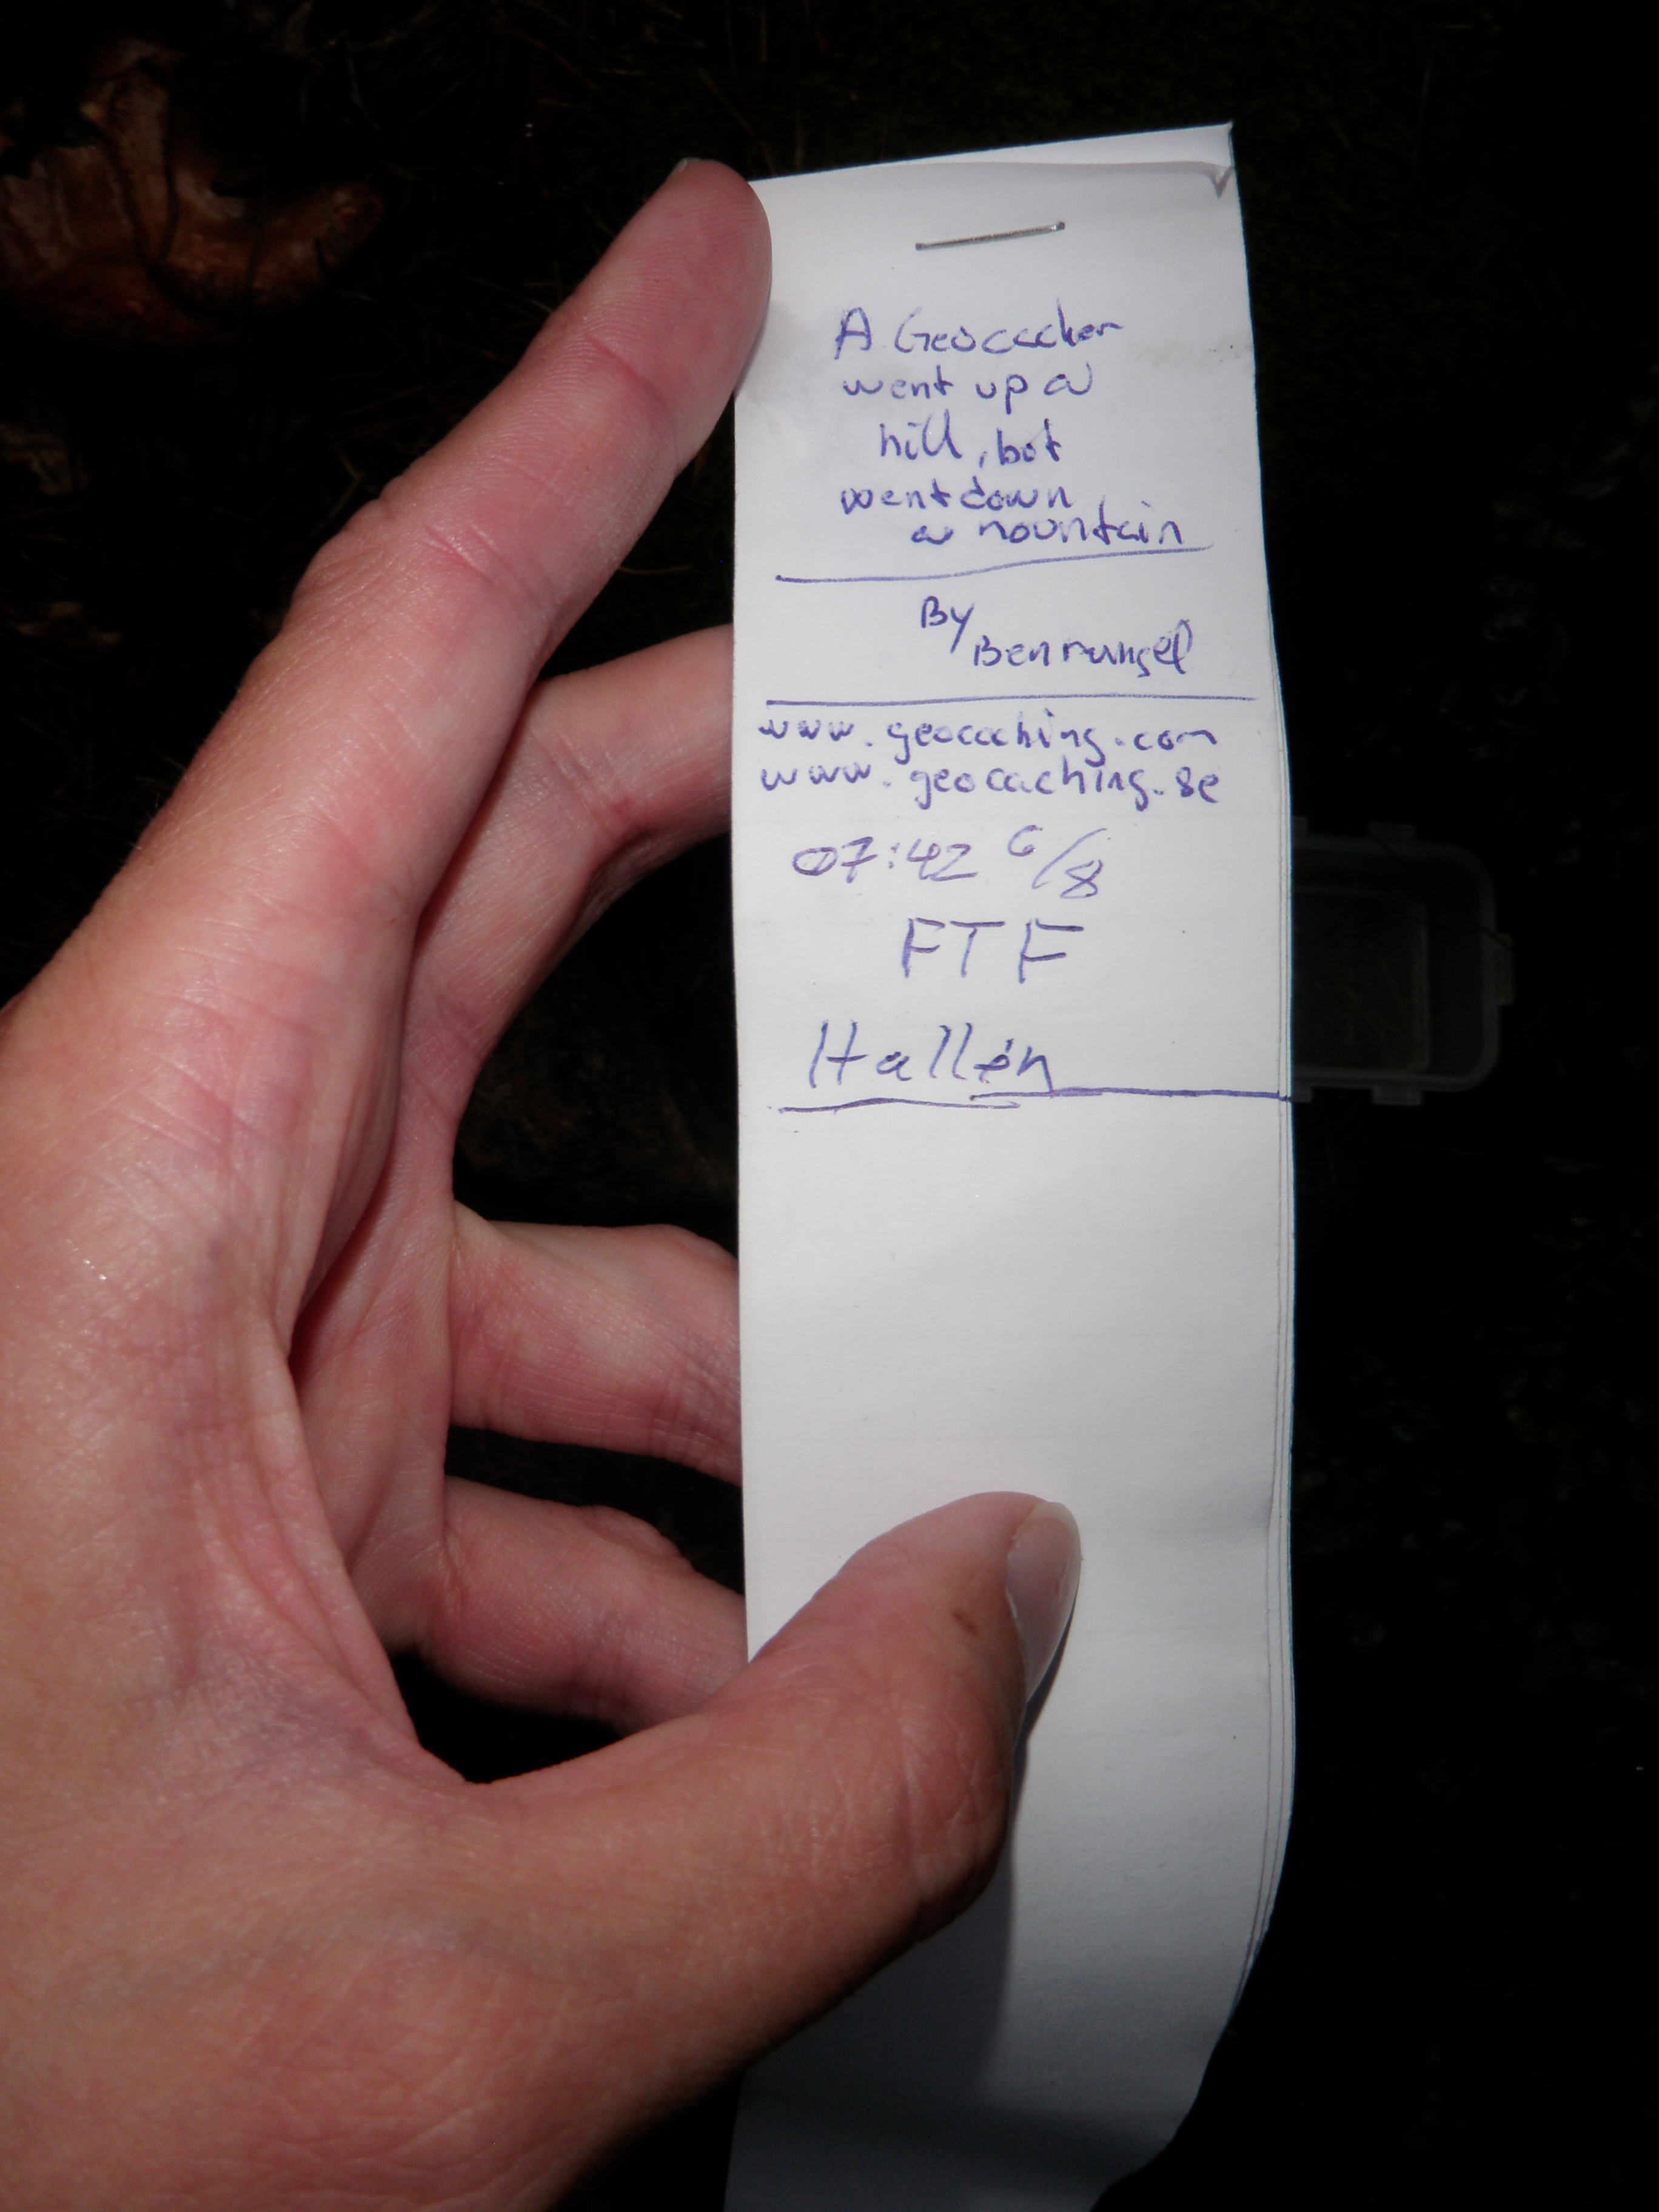 A Geocacher
went up a
hill, but
went down
a mountain
By
Benrangel
www.geocaching.com
www.geocaching.se
07:42 6/8
FTF
Hallén